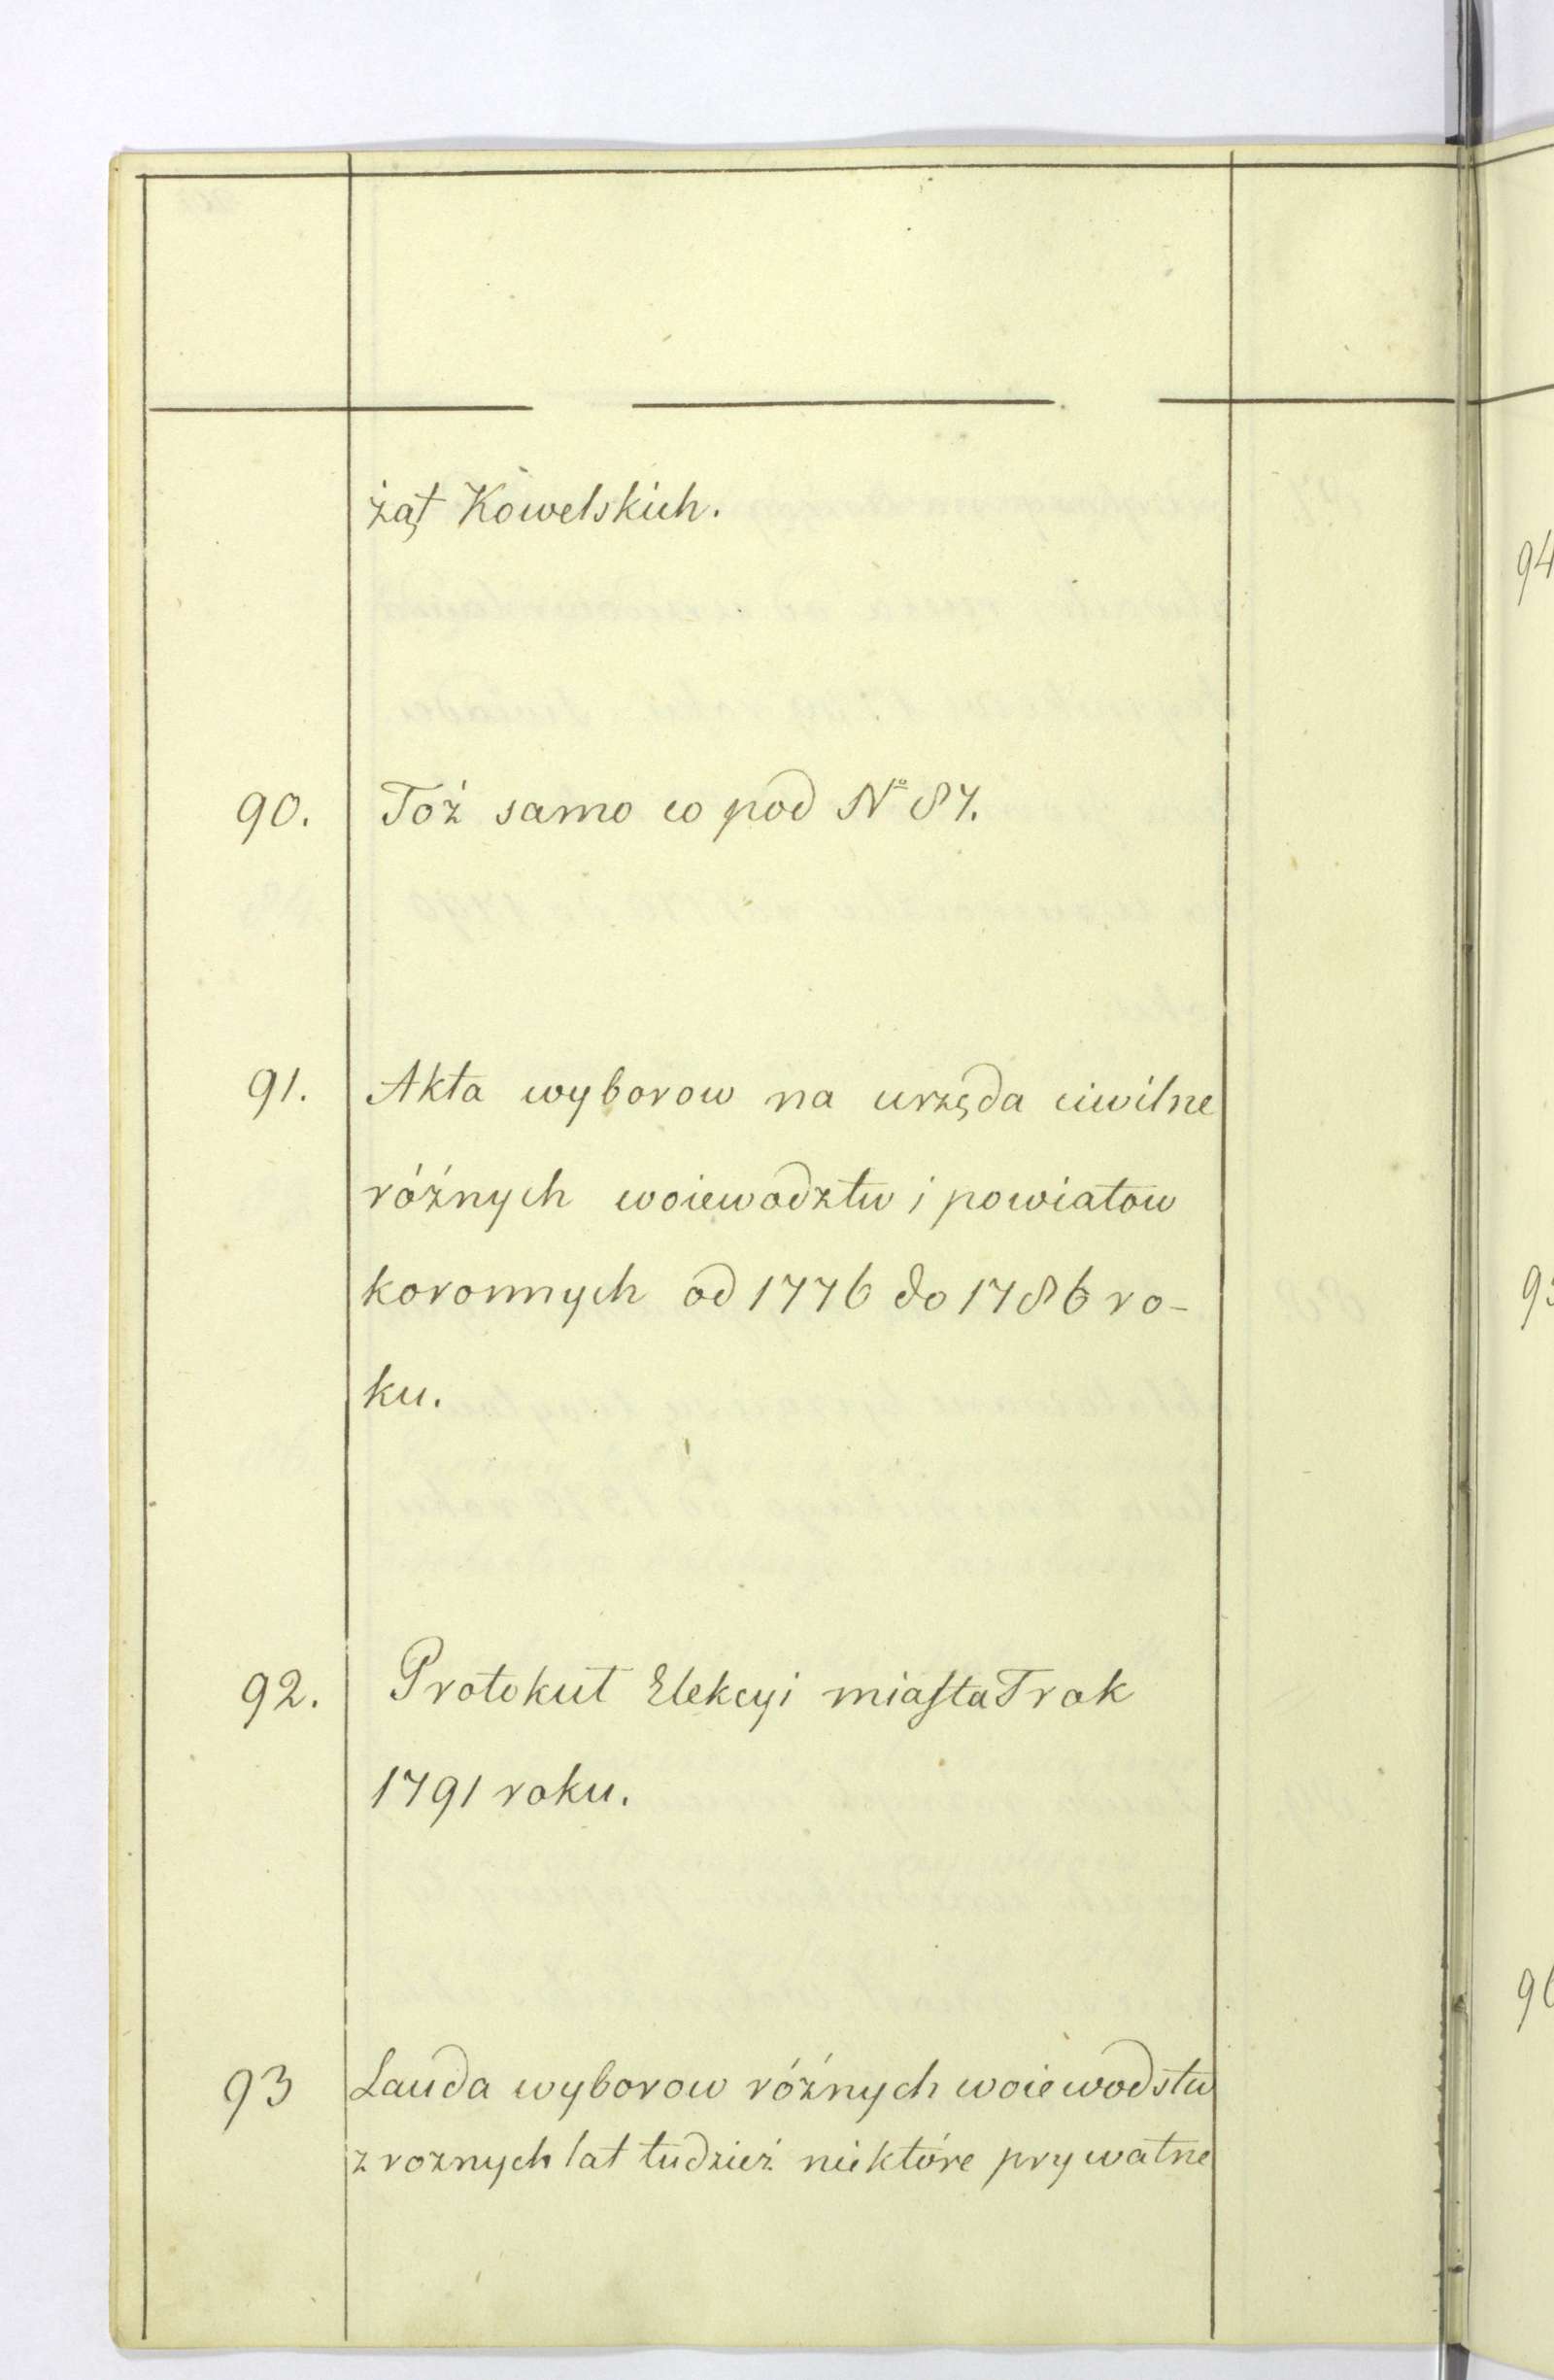 żąt Kowelskich.
90. Toż samo co pod Nº 87.
91. Akta wyborow na urzęda ciwilne
różnych woiewodztw i powiatow
koronnych od 1776 do 1786 ro-
ku.
92. Protokuł Elekcyi miasta Trok
1791 roku.
93 Lauda wyborow różnych woiewodstw
z roznych lat tudzież niektóre prywatne
94